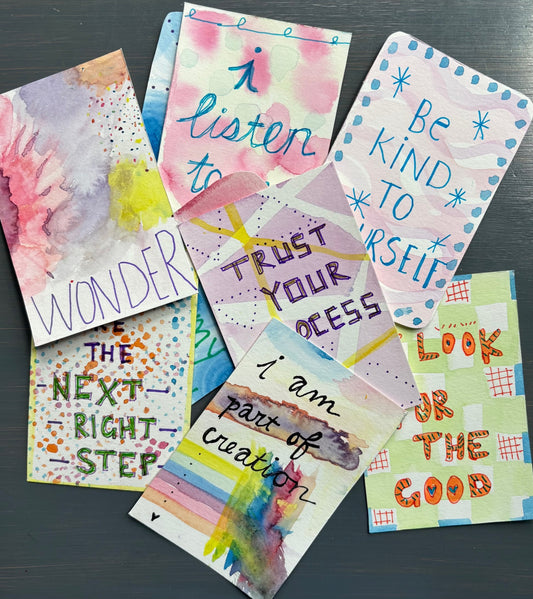 i
listen
to
Be
KIND
TO
URSELF
WONDER
TRUST
YOUR
OCESS
THE
NEXT
RIGHT
STEP
i am
part of
creation
LOOK
OR
THE
GOOD